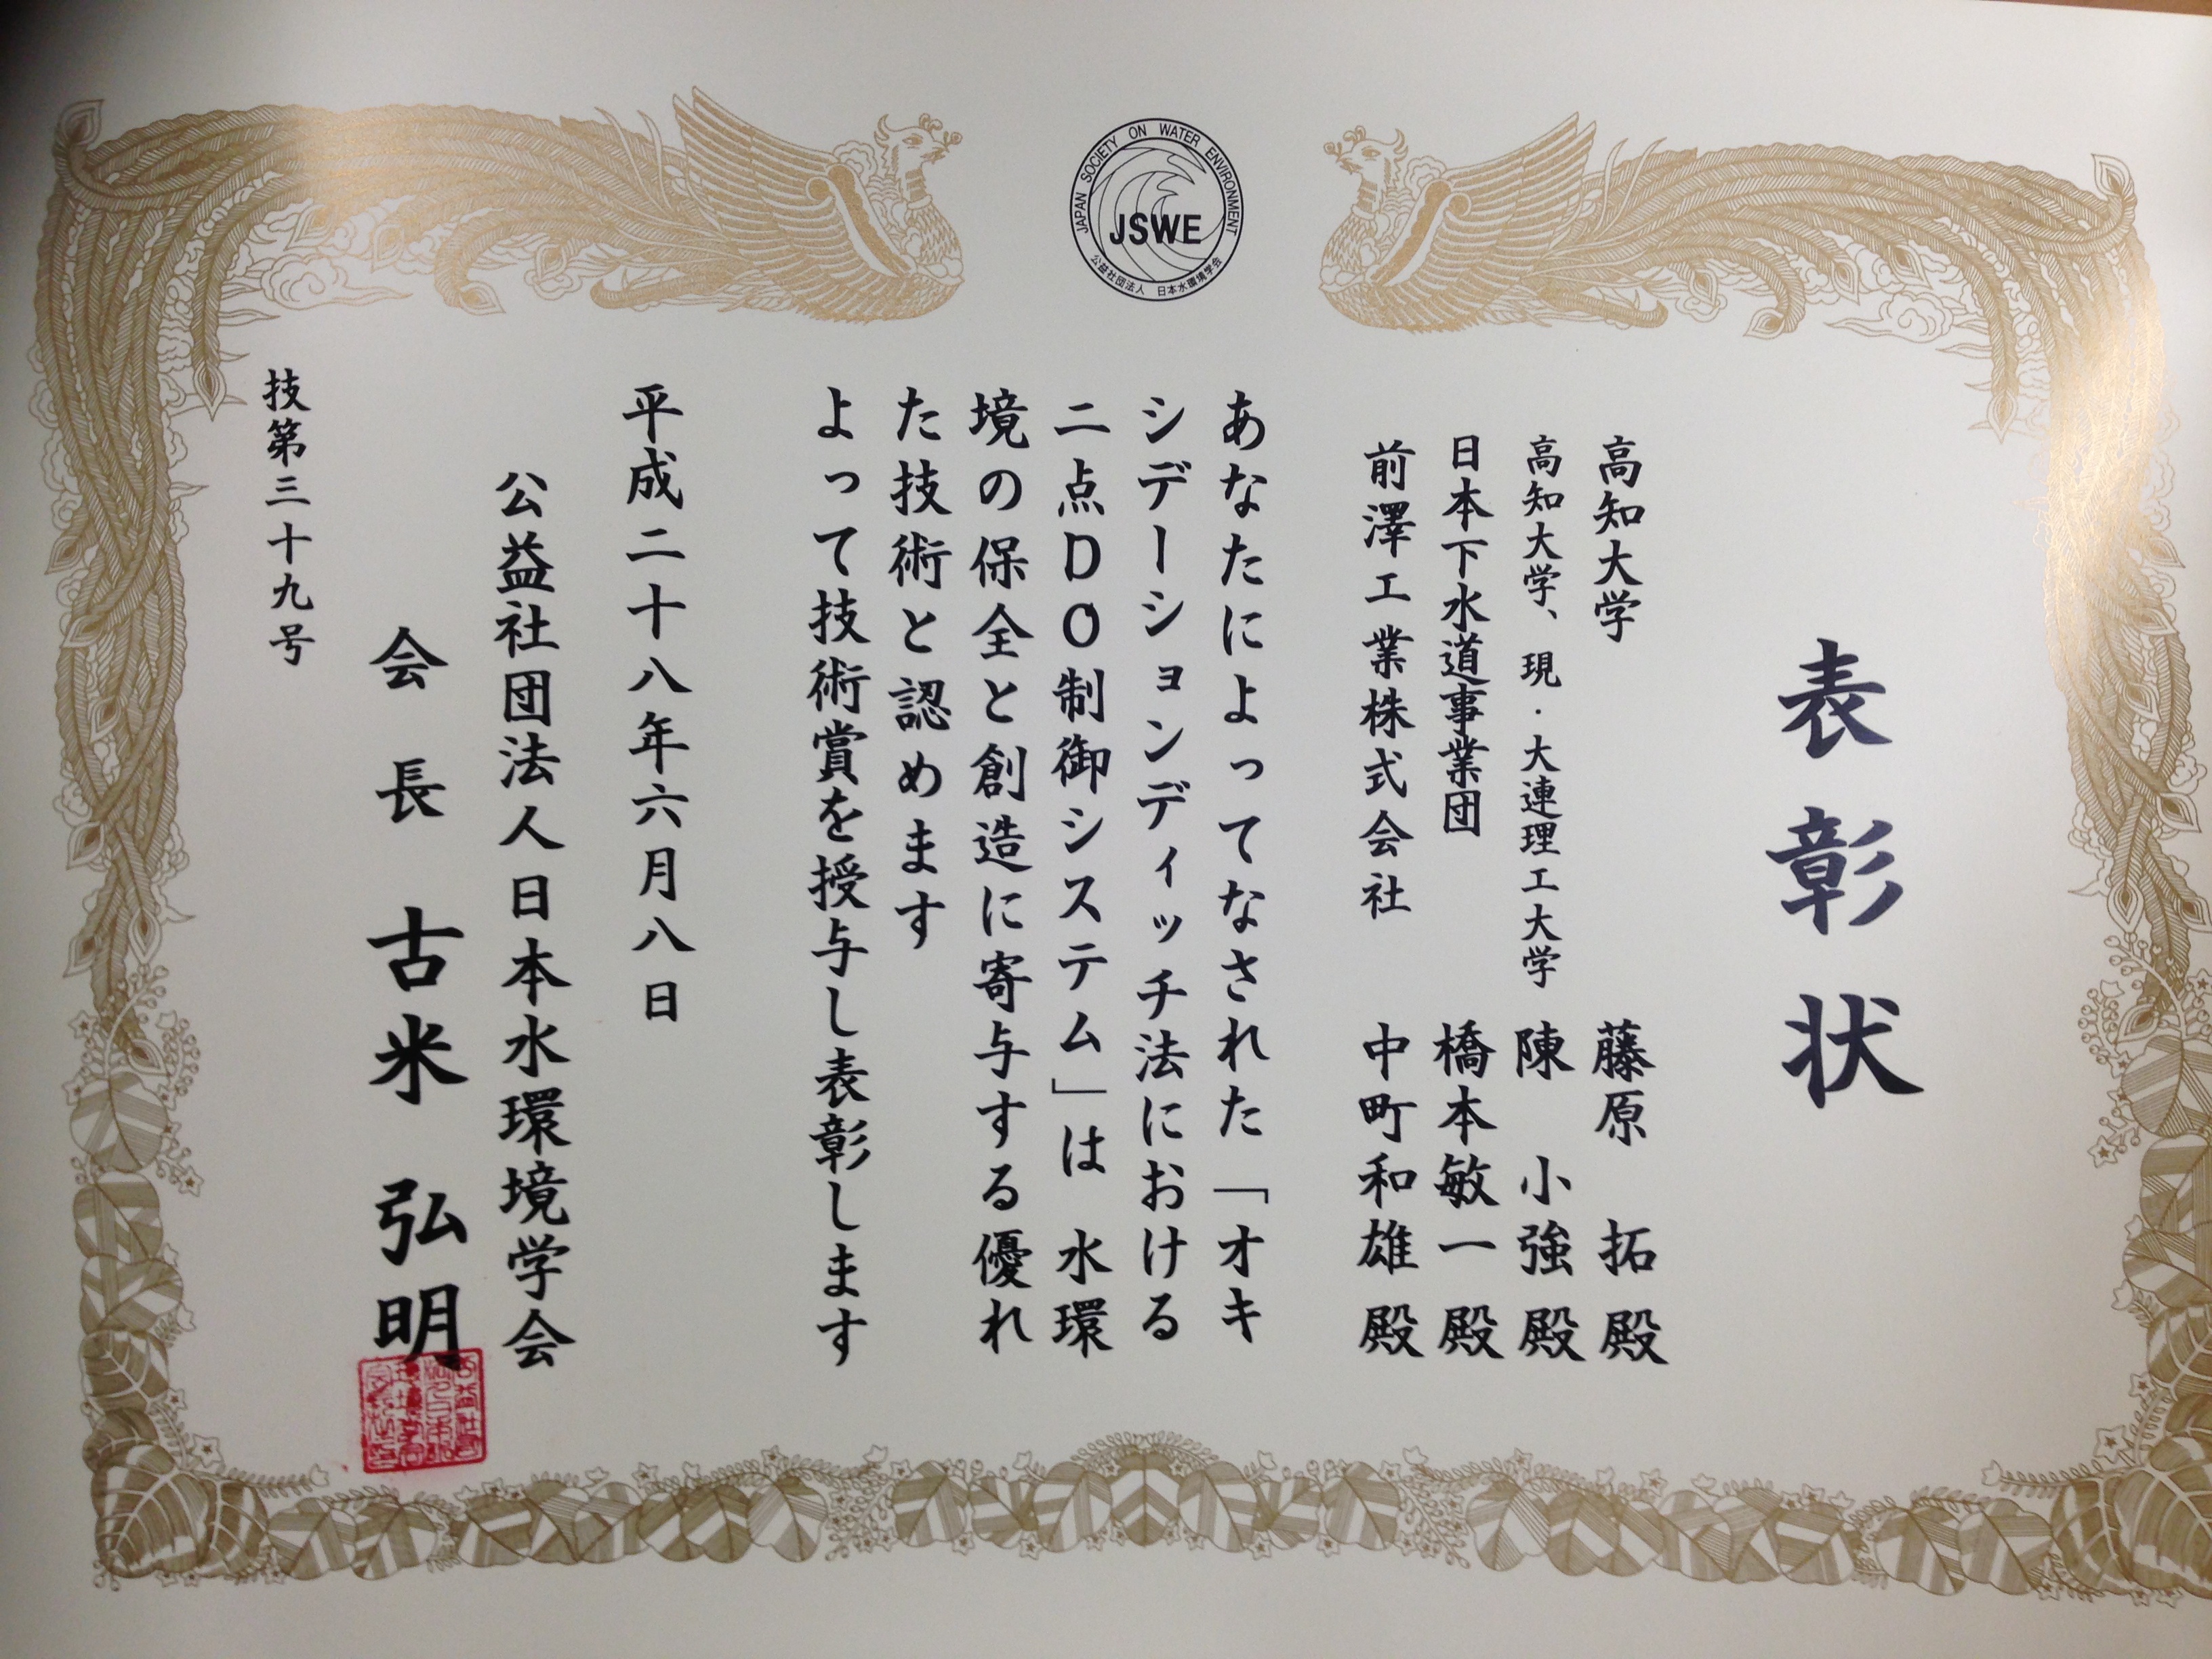 JAPAN SOCIETY ON WATER ENVIRONMENT
JSWE
公益社団法人 日本水環境学会
表彰状
高知大学 藤原 拓 殿
高知大学、現・大連理工大学 陳 小強 殿
日本下水道事業団 橋本敏一 殿
前澤工業株式会社 中町和雄 殿
あなたによってなされた「オキ
シデーションディッチ法における
二点DO制御システム」は 水環
境の保全と創造に寄与する優れ
た技術と認めます
よって技術賞を授与し表彰します
平成二十八年六月八日
公益社団法人日本水環境学会
会長 古米 弘明
技第三十九号